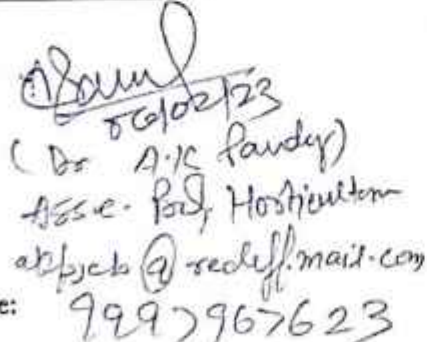 06/02/23
(Dr A.K Pandey)
Asso. Prof, Horticulture
@ rediffmail.com
e: 9997967623